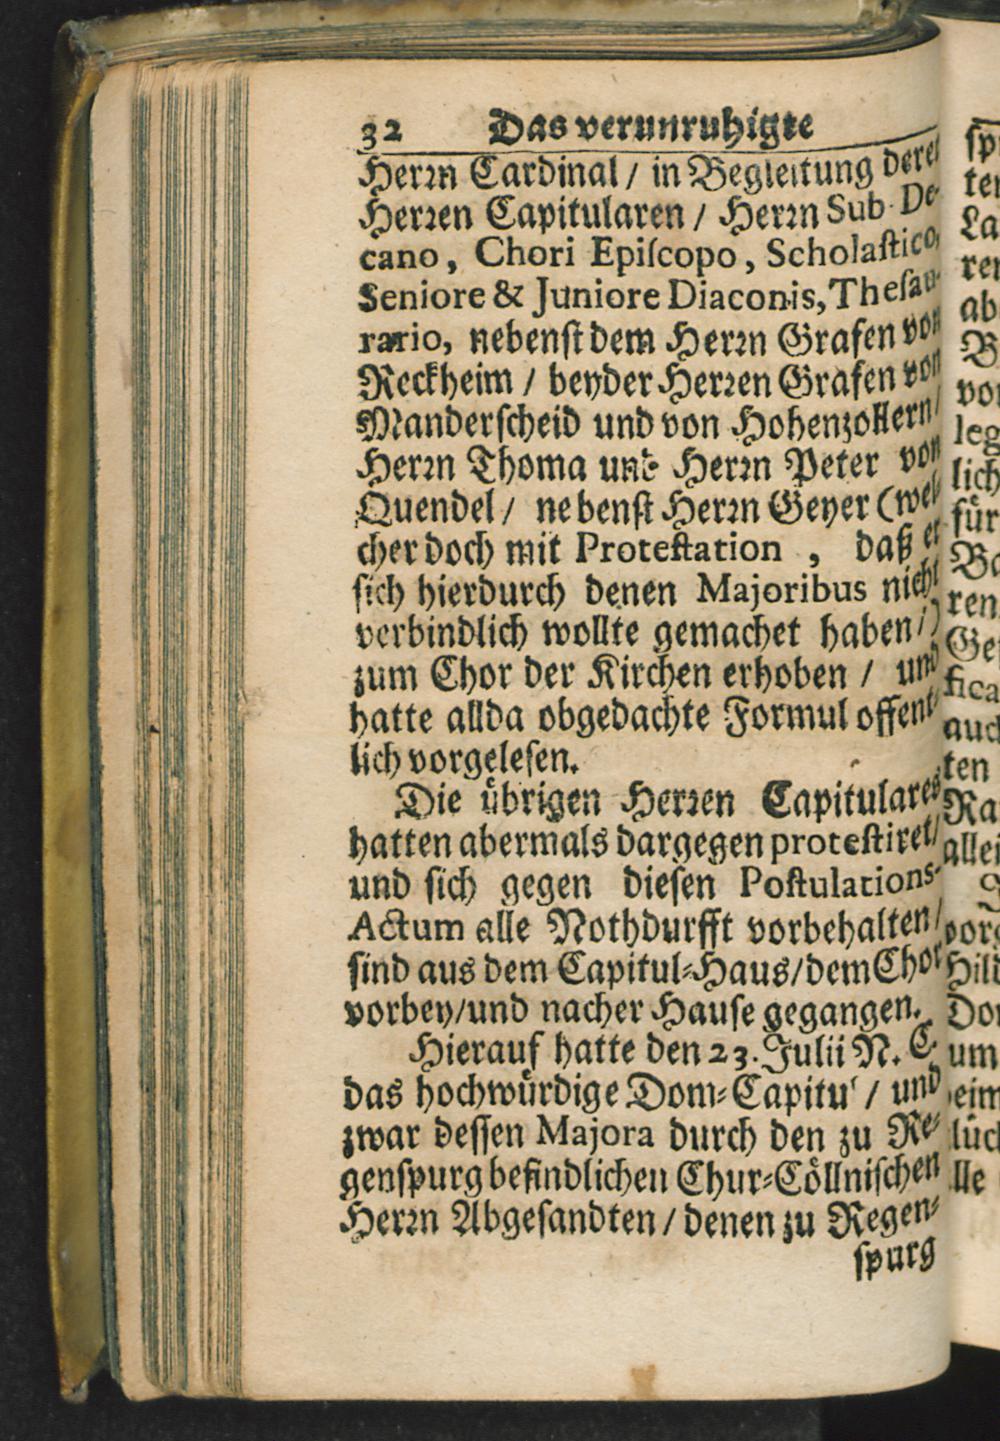 32 Das verunruhigte
Herꝛn Cardinal / in Begleitung derer
Herꝛen Capitularen / Herꝛn Sub-De-
cano, Chori Epiſcopo, Scholaſtico,
Seniore & Juniore Diaconis, Theſau-
rario, nebenſt dem Herꝛn Grafen von
Reckheim / beyder Herꝛen Grafen von
Manderſcheid und von Hohenzollern/
Herꝛn Thoma und Herꝛn Peter von
Quendel / nebenſt Herꝛn Geyer (wel-
cher doch mit Proteſtation , daß er
ſich hierdurch denen Majoribus nicht
verbindlich wollte gemachet haben/)
zum Chor der Kirchen erhoben / und
hatte allda obgedachte Formul offent-
lich vorgeleſen.
Die uͤbrigen Herꝛen Capitulares
hatten abermals dargegen proteſtiret/
und ſich gegen dieſen Poſtulations-
Actum alle Nothdurfft vorbehalten/
ſind aus dem Capitul-Haus/dem Chor
vorbey/und nacher Hauſe gegangen.
Hierauf hatte den 23. Julii N. C.
das hochwuͤrdige Dom-Capitul / und
zwar deſſen Majora durch den zu Re-
genſpurg befindlichen Chur-Coͤllniſchen
Herꝛn Abgeſandten / denen zu Regen-
ſpurg